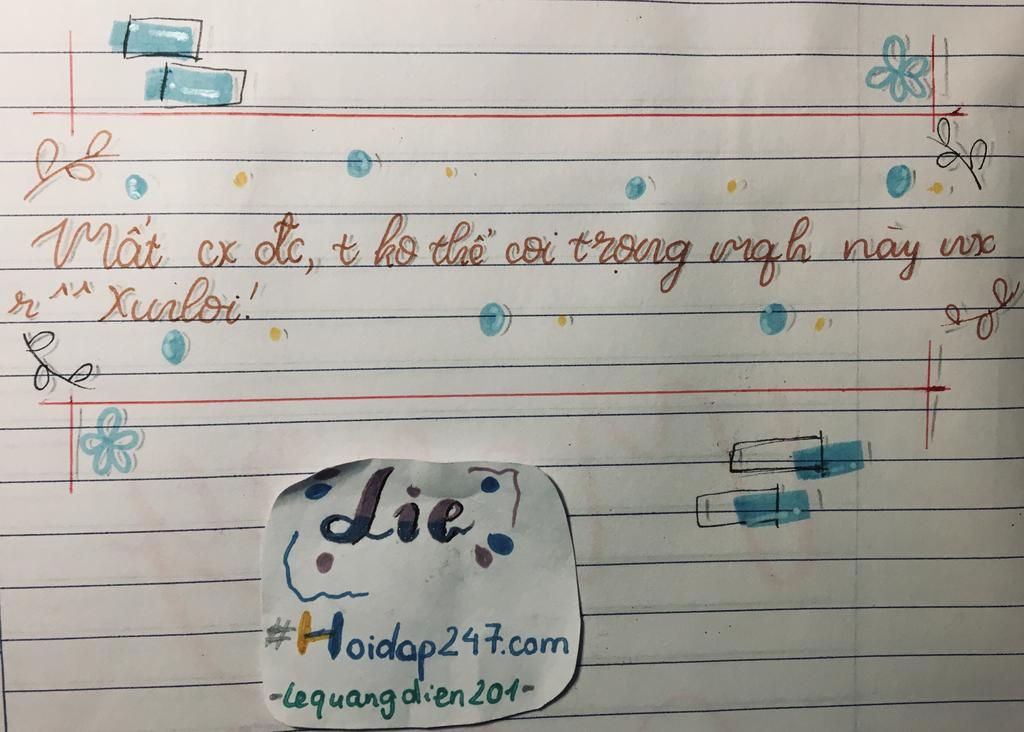 Mất cx đc, t ko thể coi trọng mqh này nx
r^^ Xunloi!
die
#Hoidap247.com
-lequangdien201-